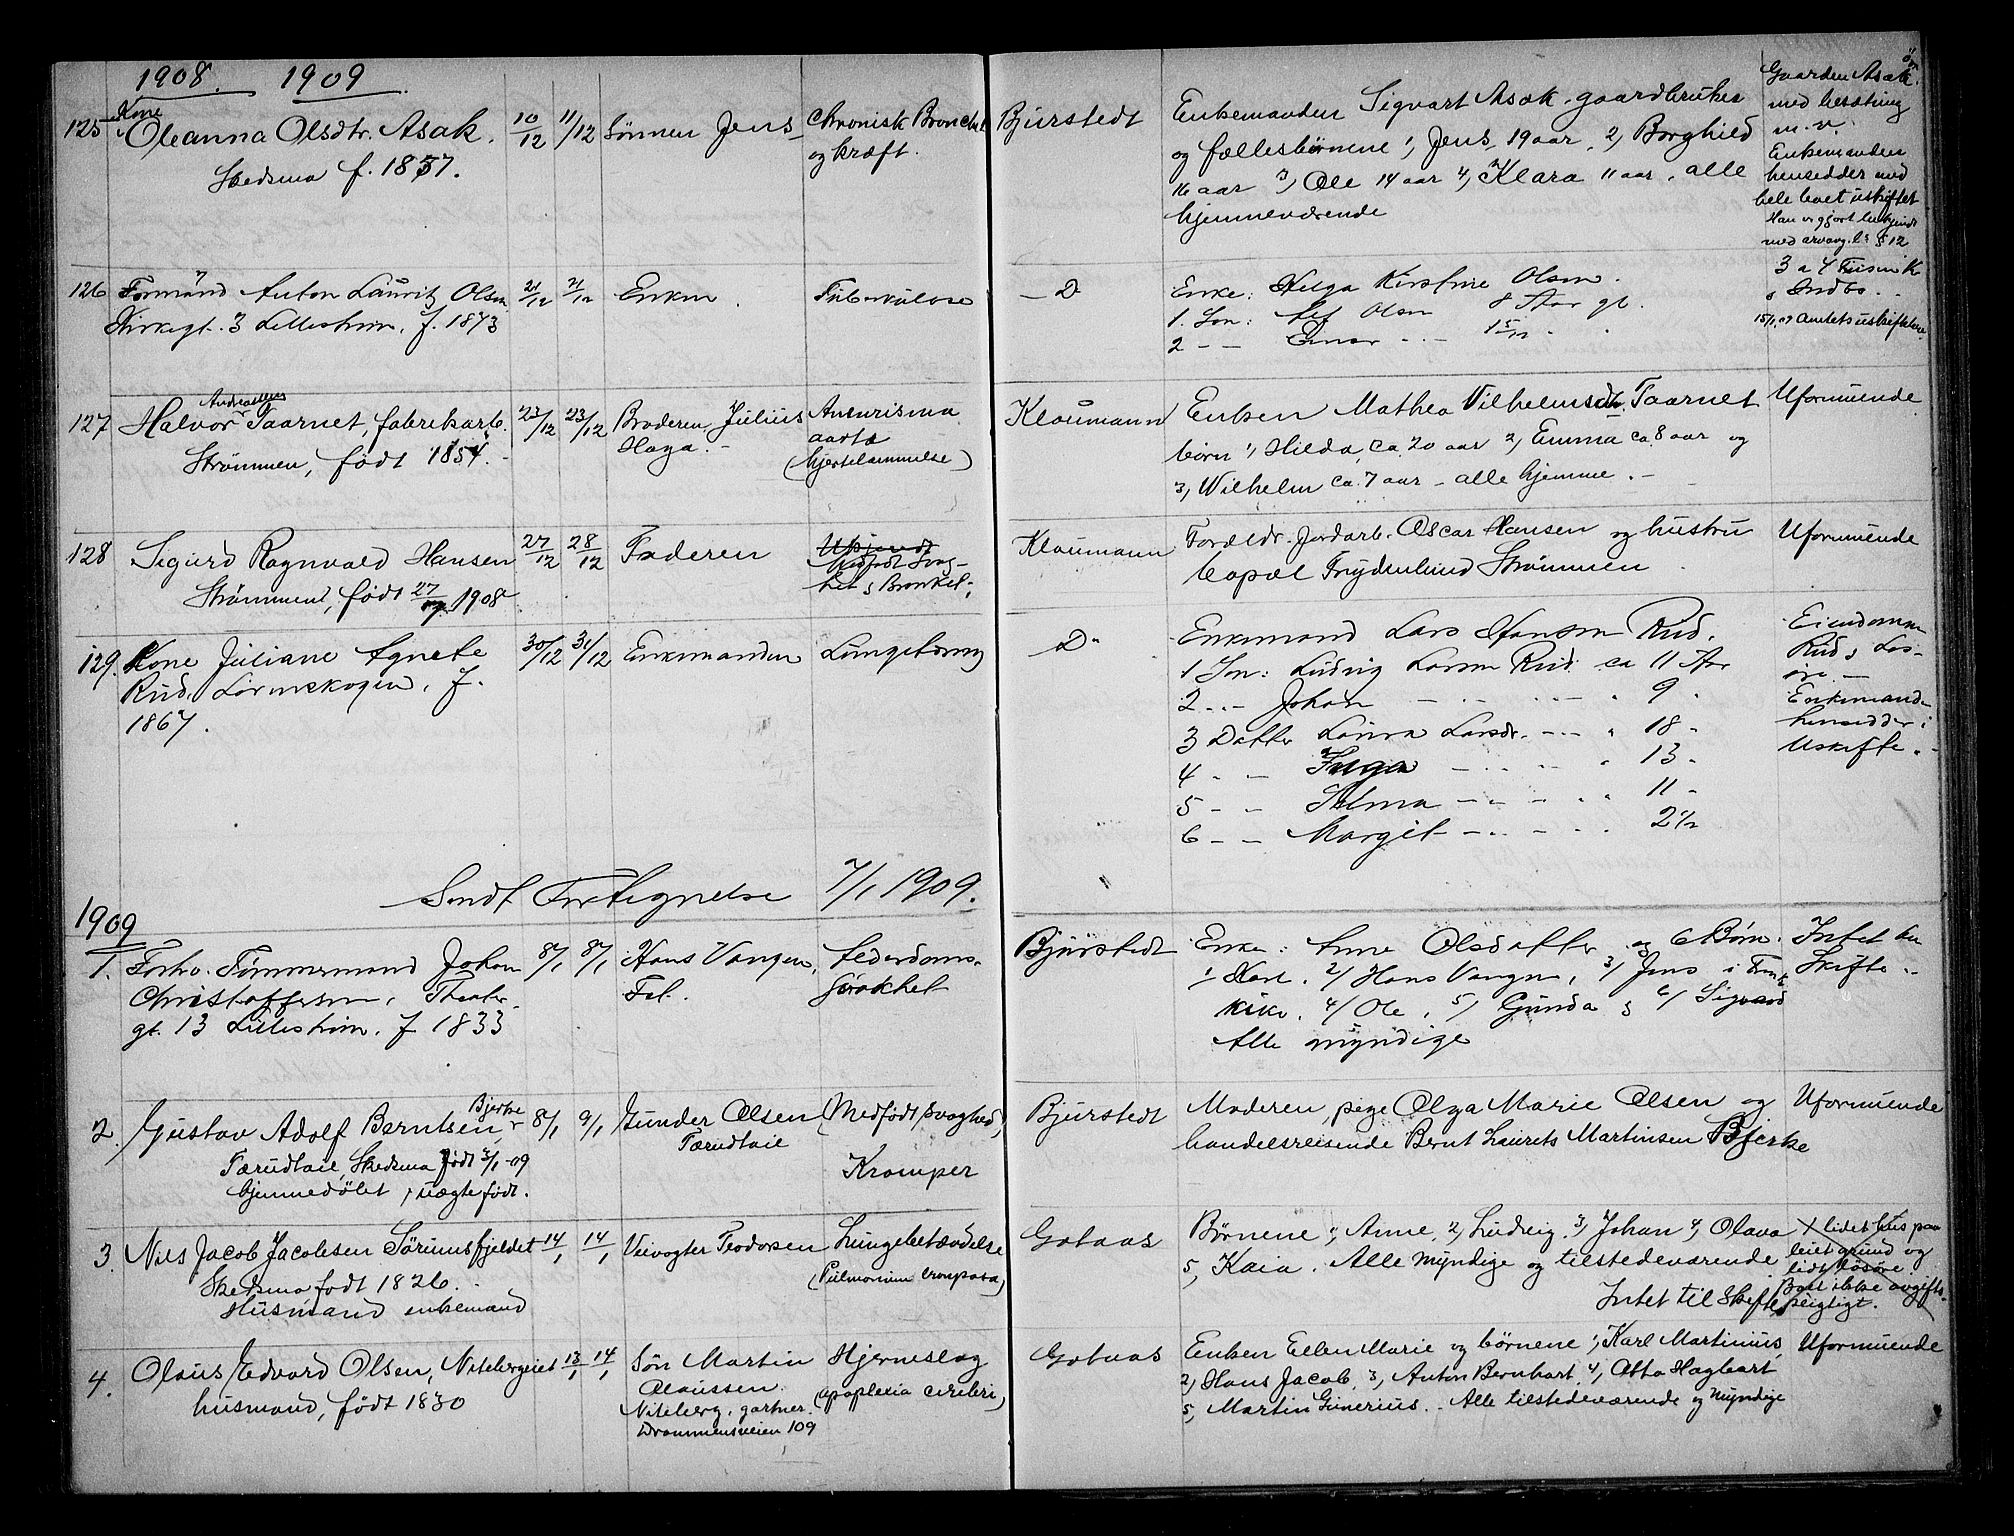 1908. 1909
125 Kone
Oleanna Olsdtr. Asak.
Skedsmo f. 1857.
10/12 11/12 Sønnen Jens
Chronisk Bronchit
og kræft.
Bjurstedt
Enkemanden Sigvart Asak, gaardbruker
og fællesbørnene 1, Jens, 19 aar, 2, Borghild
16 aar 3, Ole 14 aar 4, Klara 11 aar, alle
hjemmeværende
Gaarden Asak
med besætning
m. v.
Enkemanden
hensidder med
hele boet uskiftet
Han er gjort bekjendt
med arveavg. l. § 12
126 Formand Anton Lauritz Olsen
Kirkegt. 3 Lillestrøm, f. 1873
21/12 21/12 Enken.
Tuberkulose
— D
Enke: Helga Kirstine Olsen.
1. Søn: Leif Olsen 8 Aar gl.
2 — — Einar — — 1 5/12
3 a 4 Tusen Kr
i Indbo.
127 Halvor Andreassen Taarnet, fabrikarb.
Strømmen, født 1854.
23/12 23/12 Broderen Julius
Haga. —
Aneurisma
aorta
(hjertelammelse)
Klaumann
Enken Mathea Vilhelmsdtr. Taarnet
børn 1, Hilda, ca. 20 aar 2, Emma ca 8 aar og
3, Wilhelm ca. 7 aar — alle hjemme. —
Uformuende
128 Sigurd Ragnvald Hansen
Strømmen, født 27/ 1908
27/12 28/12 Faderen
Ukjendt
Medfødt Svag-
het & Bronkit.
Klaumann
Forældr. Jordarb. Oscar Hansen og hustru
Bopæl Frydenlund Strømmen
Uformuende
129. Kone Juliane Agnete
Rud, Lørenskogen, f.
1867.
30/12 31/12 Enkemanden
Lungebetændelse
D"
Enkemand Lars Hansen Rud.
1 Søn: Ludvig Larsen Rud: ca 11 Aar
2 — — Johan — — — " 9 "
3 Datter Laura Larsdr. — — " 18 "
4 — — — — " 13 "
5 — — Selma — — " 11 "
6 — — Margit — — " 2½
Eiendommen
Rud & Løs-
øre. —
Enkemanden
hensidder i
Uskifte. —
Sendt Fortegnelse 7/1 1909.
1909
1. Forhv. Tømmermand Johan
Christoffersen, Theater-
gt. 13 Lillestrøm, f 1833
8/1 8/1 Hans Vangen,
Fet.
Alderdoms-
svakhet
Bjurstedt
Enke: Anne Olsdatter og 6 Børn.
1/ Karl, 2/ Hans Vangen, 3/ Jens i Frank-
rike, 4/ Ole, 5/ Gunda & 6/ Sigvard
Alle myndige
Intet til
Skifte. —
2. Gustav Adolf Berntsen Bjerke
Færudløie, Skedsmo født 3/1 -09
hjemmedøbt, uægte født.
8/1 9/1 Gunder Olsen
Færudløie
(Medfødt svaghed)
Kramper
Bjurstedt
Moderen, pige Olga Marie Olsen og
handelsreisende Bernt Laurits Martinsen Bjerke
Uformuende
3. Nils Jacob Jacobsen Sørumsfjeldet
Skedsmo født 1826.
Husmand enkemand
14/1 14/1 Veivogter Teodorsen
Lungebetændelse
(Pulmonium crouposa)
Gotaas
Børnene 1, Anne, 2, Ludvig, 3, Johan 4, Olava
5, Kaia. Alle myndige og tilstedeværende
Intet til Skifte
× lidet hus paa
leiet grund og
lidt løsøre
Boet ikke avgifts-
pligtigt.
4. Olaus Edvard Olsen, Nitebergeiet
husmand, født 1830
13/1 14/1 Søn Martin
Olaussen.
Niteberg, gartner.
Drammensveien 109
Hjerneslag
(apoplexia cerebri)
Gotaas
Enken Ellen Marie og børnene 1, Karl Martinius,
2, Hans Jacob, 3, Anton Bernhart, 4, Otto Hagbart
5, Martin Gunerius. — Alle tilstedeværende og myndige
Uformuende